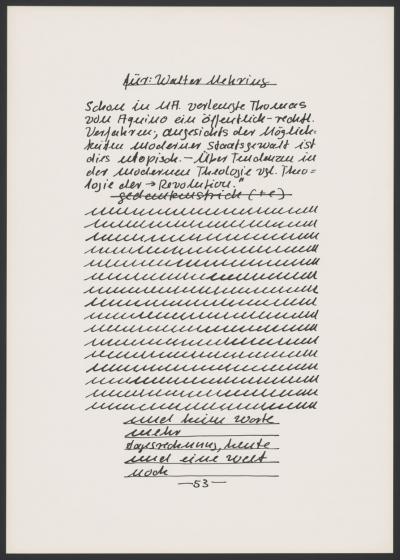 für: Walter Mehring
Schon im MA. verlangte Thomas
von Aquino ein öffentlich-rechtl.
Verfahren; angesichts der Möglich-
keiten moderner Staatsgewalt ist
dies utopisch. – Über Tendenzen in
der modernen Theologie vgl. Theo=
logie der → Revolution."
gedankenstrich (+e)
und keine worte
mehr
tagesrechnung, heute
und eine welt
noch
—53—